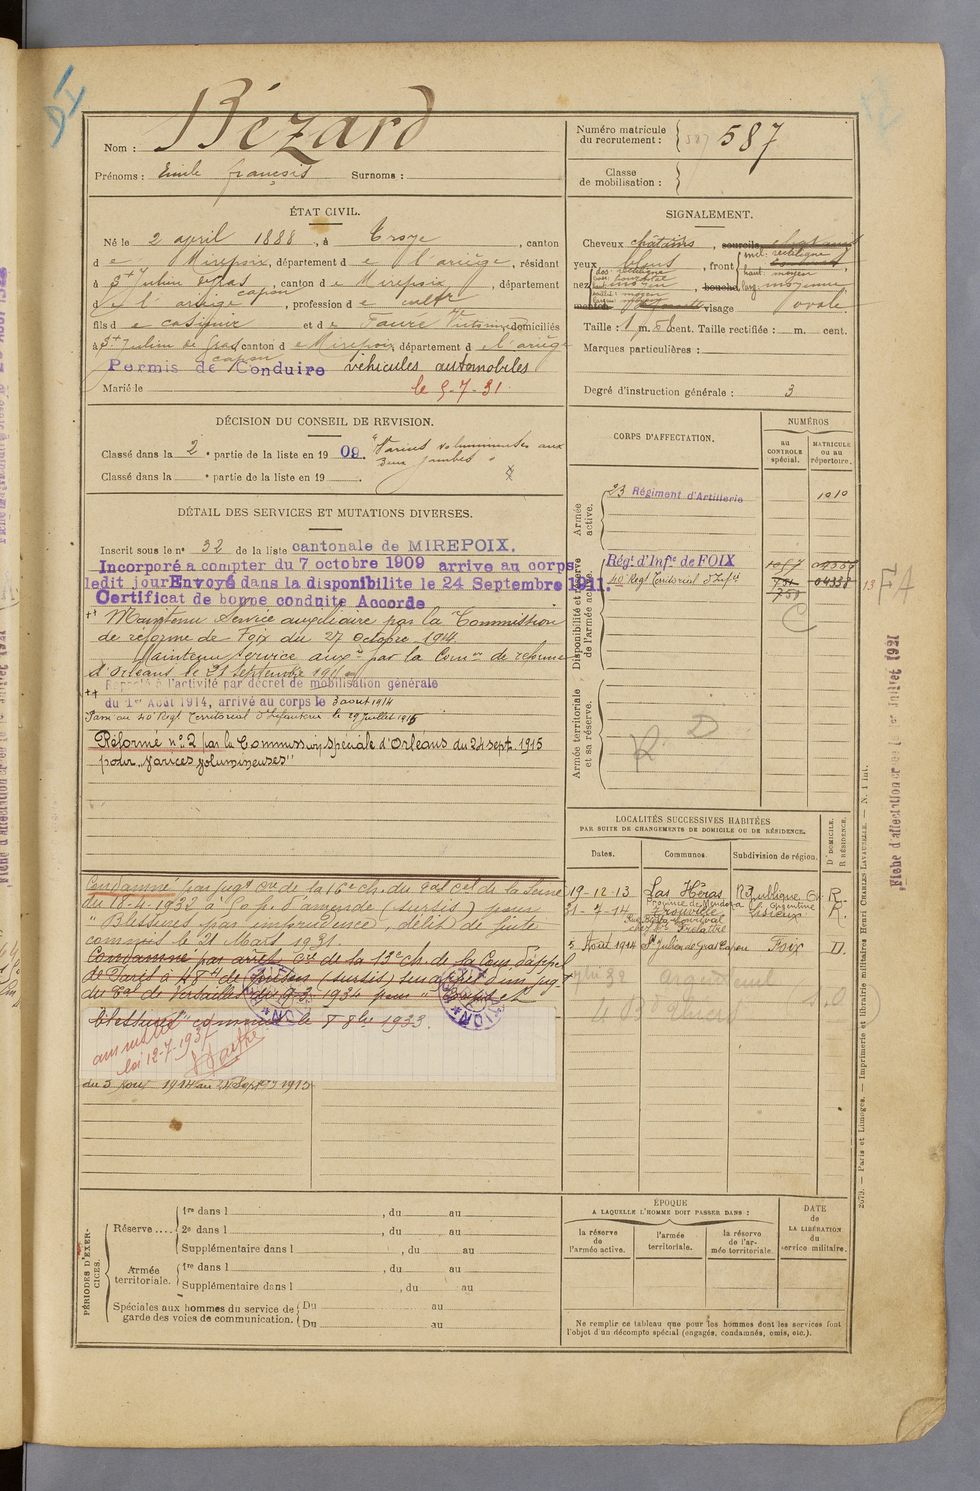 Bézard
Nom :
Prénoms : Emile françois Surnoms :
Numéro matricule
du recrutement : 587 587
Classe
de mobilisation :
ÉTAT CIVIL.
Né le 2 april 1888, à Troye, canton
de Mirepoix, département de l'ariège, résidant
à St Julien de Gras capou, canton de Mirepoix, département
de l'ariège, profession de cultr
fils de casimir et de Faure domiciliés
à St Julien de Gras capou canton de Mirepoix département de l'ariège
Permis de Conduire véhicules automobiles
Marié le le 9-7-31.
SIGNALEMENT.
Cheveux châtains, sourcils
yeux bleus, front incl: rectiligne
haut: moyen
larg: moyenne
nez dos: rectiligne
moyen
bouche
menton visage ovale
Taille : 1 m. cent. Taille rectifiée : m. cent.
Marques particulières :
Degré d'instruction générale : 3
DÉCISION DU CONSEIL DE REVISION.
Classé dans la 2e partie de la liste en 1909. "Varices volumineuses aux
Deux jambes"
Classé dans la e partie de la liste en 19
CORPS D'AFFECTATION.
NUMÉROS
au
CONTROLE
spécial.
MATRICULE
ou au
répertoire.
Armée
active.
23 Régiment d'Artillerie 1010
Disponibilité et réserve
de l'armée active.
Régt d'Infie de FOIX
40 Regt Territorial d'Infie 04338
13
FA
C
Armée territoriale
et sa réserve.
R. D
DÉTAIL DES SERVICES ET MUTATIONS DIVERSES.
Inscrit sous le no 32 de la liste cantonale de MIREPOIX.
Incorporé a compter du 7 octobre 1909 arrive au corps
ledit jour Envoyé dans la disponibilite le 24 Septembre 1911.
Certificat de bonne conduite Accordé
Maintenu Service auxiliaire par la Commission
de réforme de Foix du 27 octobre 1914.
Maintenu service auxre par la Comon de réforme
d'Orléans le 21 septembre
Rappelé à l'activité par décret de mobilisation générale
du 1er Août 1914, arrivé au corps le 3 aout 1914
Passé au 40e Regt Territorial d'Infanterie le 29 juillet 1915
Réformé no 2 par la Commission Spéciale d'Orleans du 24 sept. 1915
pour "varices volumineuses"
Condamné par jugt cre de la 16e ch. du gal cel de la Seine
du 18-4-1932 à 50 f. d'amende (sursis) pour
"Blessures par imprudence, délit de fuite
commis le 21 Mars 1931.
Condamné par arrêt cre de la 12e ch. de la Cour d'appel
de Paris à 48 H de prison (sursis) sur appel d'un jugt
du Cal de Versailles du 9-3-1934 pour "Coups et
blessures" commis le 8 8bre 1933.
amnistié
loi 12-7-1937
du 3 Aout 1914 au 24 Sept 1915
LOCALITÉS SUCCESSIVES HABITÉES
PAR SUITE DE CHANGEMENTS DE DOMICILE OU DE RÉSIDENCE.
Dates. Communes. Subdivision de région. D. DOMICILE. R RÉSIDENCE.
19-12-13 Las Héras République R.
Province de Mendoza Argentine
31-7-14 Trouville Lisieux R.
5 Aout 1914 St Julien de Gras Capou Foix D.
Argenteuil
PÉRIODES D'EXER-
CICES.
Réserve .... 1re dans l , du au
2e dans l , du au
Supplémentaire dans l , du au
Armée
territoriale. 1re dans l , du au
Supplémentaire dans l , du au
Spéciales aux hommes du service de
garde des voies de communication. Du au
Du au
ÉPOQUE
A LAQUELLE L'HOMME DOIT PASSER DANS :
la réserve
de
l'armée active.
l'armée
territoriale.
la réserve
de l'ar-
mée territoriale.
DATE
de
LA LIBÉRATION
du
service militaire.
Ne remplir ce tableau que pour les hommes dont les services font
l'objet d'un décompte spécial (engagés, condamnés, omis, etc.).
2079. — Paris et Limoges. — Imprimerie et librairie militaires Henri CHARLES-LAVAUZELLE. — N. 1 int.
Fiche d'affectation Juillet 1921